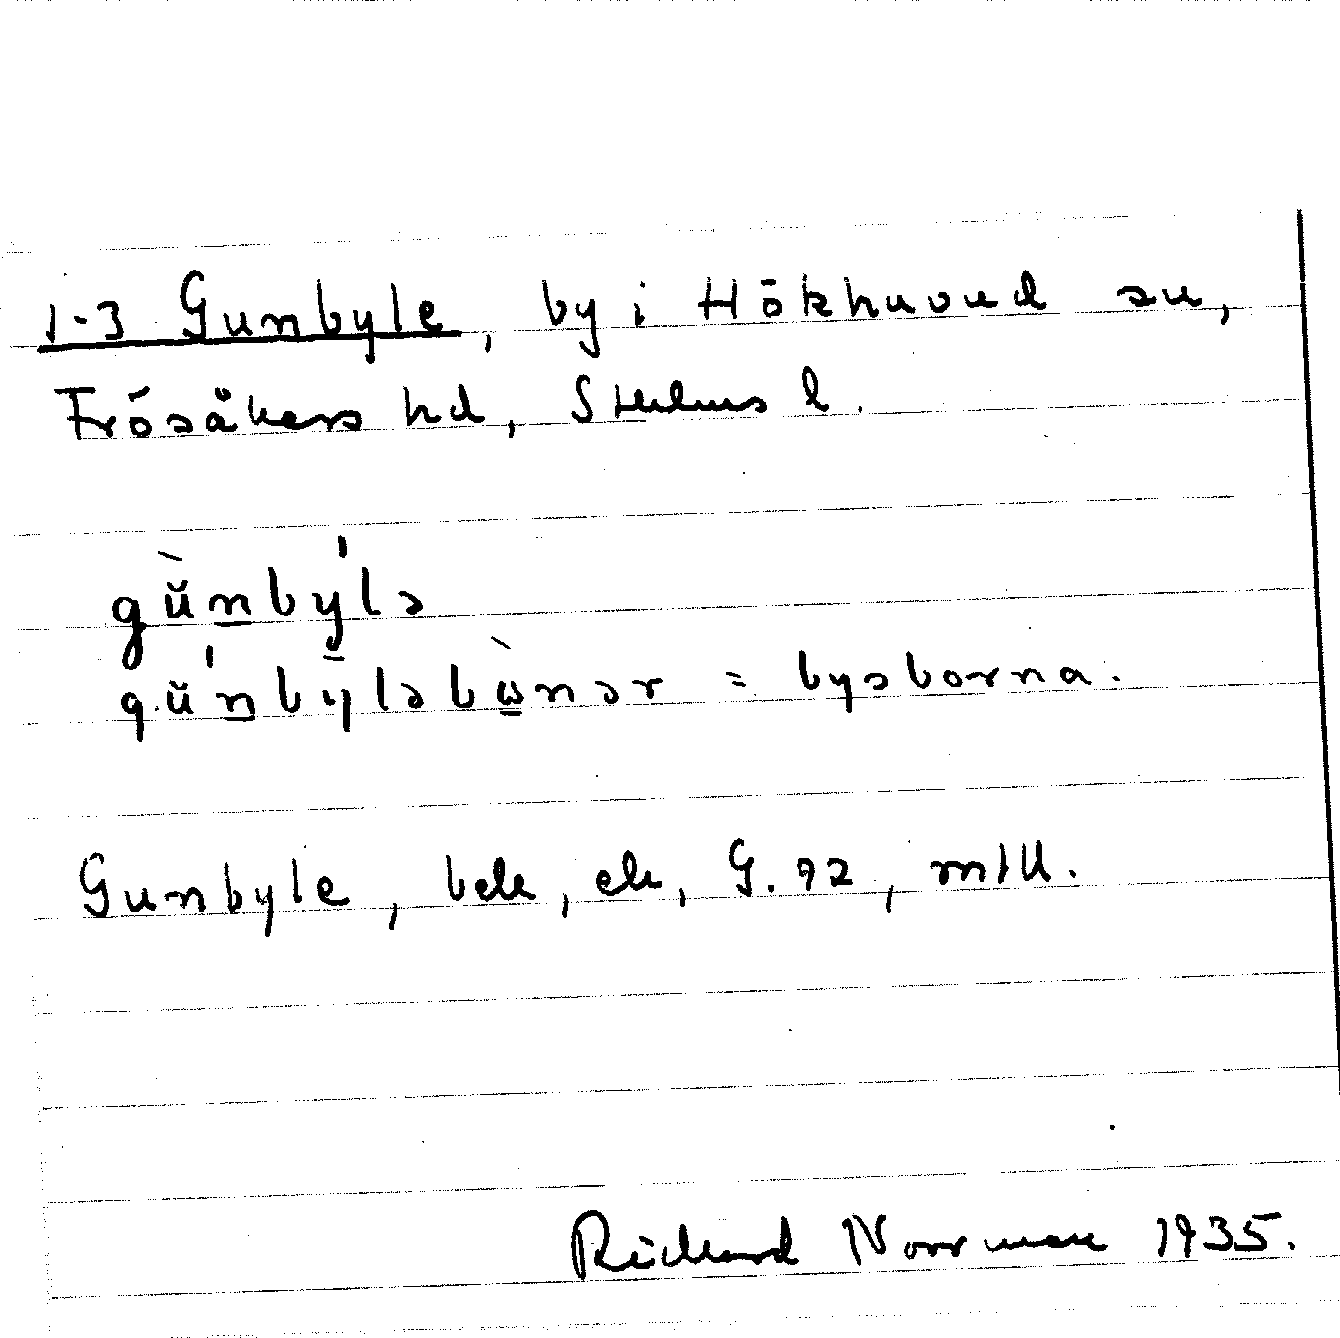 1-3 Gunbyle, by i Hökhuvud sn,
Frösåkers hd, Sthlms l.
gùnbýlə
gúnbȳləbὼnər = bysborna.
Gunbyle, bek, ek, G. 92, mtl.
Richard Norrman 1935.